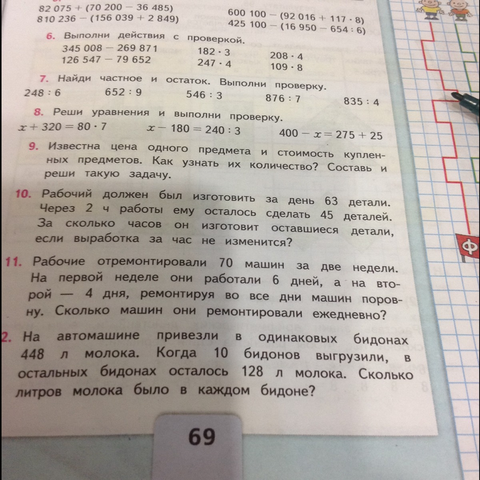 82 075 + (70 200 − 36 485) 600 100 − (92 016 + 117 · 8)
810 236 − (156 039 + 2 849) 425 100 − (16 950 − 654 : 6)
6. Выполни действия с проверкой.
345 008 − 269 871 182 · 3 208 · 4
126 547 − 79 652 247 · 4 109 · 8
7. Найди частное и остаток. Выполни проверку.
248 : 6 652 : 9 546 : 3 876 : 7 835 : 4
8. Реши уравнения и выполни проверку.
x + 320 = 80 · 7 x − 180 = 240 : 3 400 − x = 275 + 25
9. Известна цена одного предмета и стоимость куплен-
ных предметов. Как узнать их количество? Составь и
реши такую задачу.
10. Рабочий должен был изготовить за день 63 детали.
Через 2 ч работы ему осталось сделать 45 деталей.
За сколько часов он изготовит оставшиеся детали,
если выработка за час не изменится?
11. Рабочие отремонтировали 70 машин за две недели.
На первой неделе они работали 6 дней, а на вто-
рой — 4 дня, ремонтируя во все дни машин поров-
ну. Сколько машин они ремонтировали ежедневно?
2. На автомашине привезли в одинаковых бидонах
448 л молока. Когда 10 бидонов выгрузили, в
остальных бидонах осталось 128 л молока. Сколько
литров молока было в каждом бидоне?
69
Ф